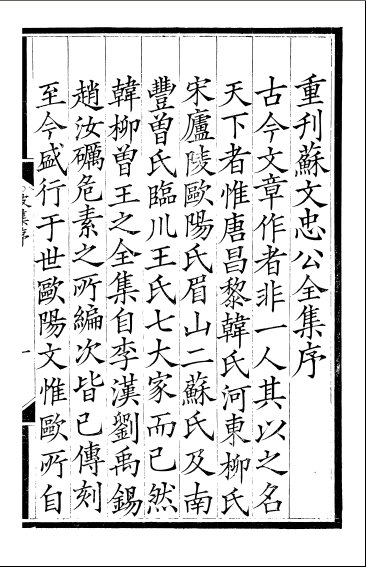 重刊蘇文忠公全集序
古今文章作者非一人其以之名
天下者惟唐昌黎韓氏河東柳氏
宋廬陵歐陽氏眉山二蘇氏及南
豐曾氏臨川王氏七大家而已然
韓柳曾王之全集自李漢劉禹錫
趙汝礪危素之所編次皆已傳刻
至今盛行于世歐陽文惟歐所自
集序
一